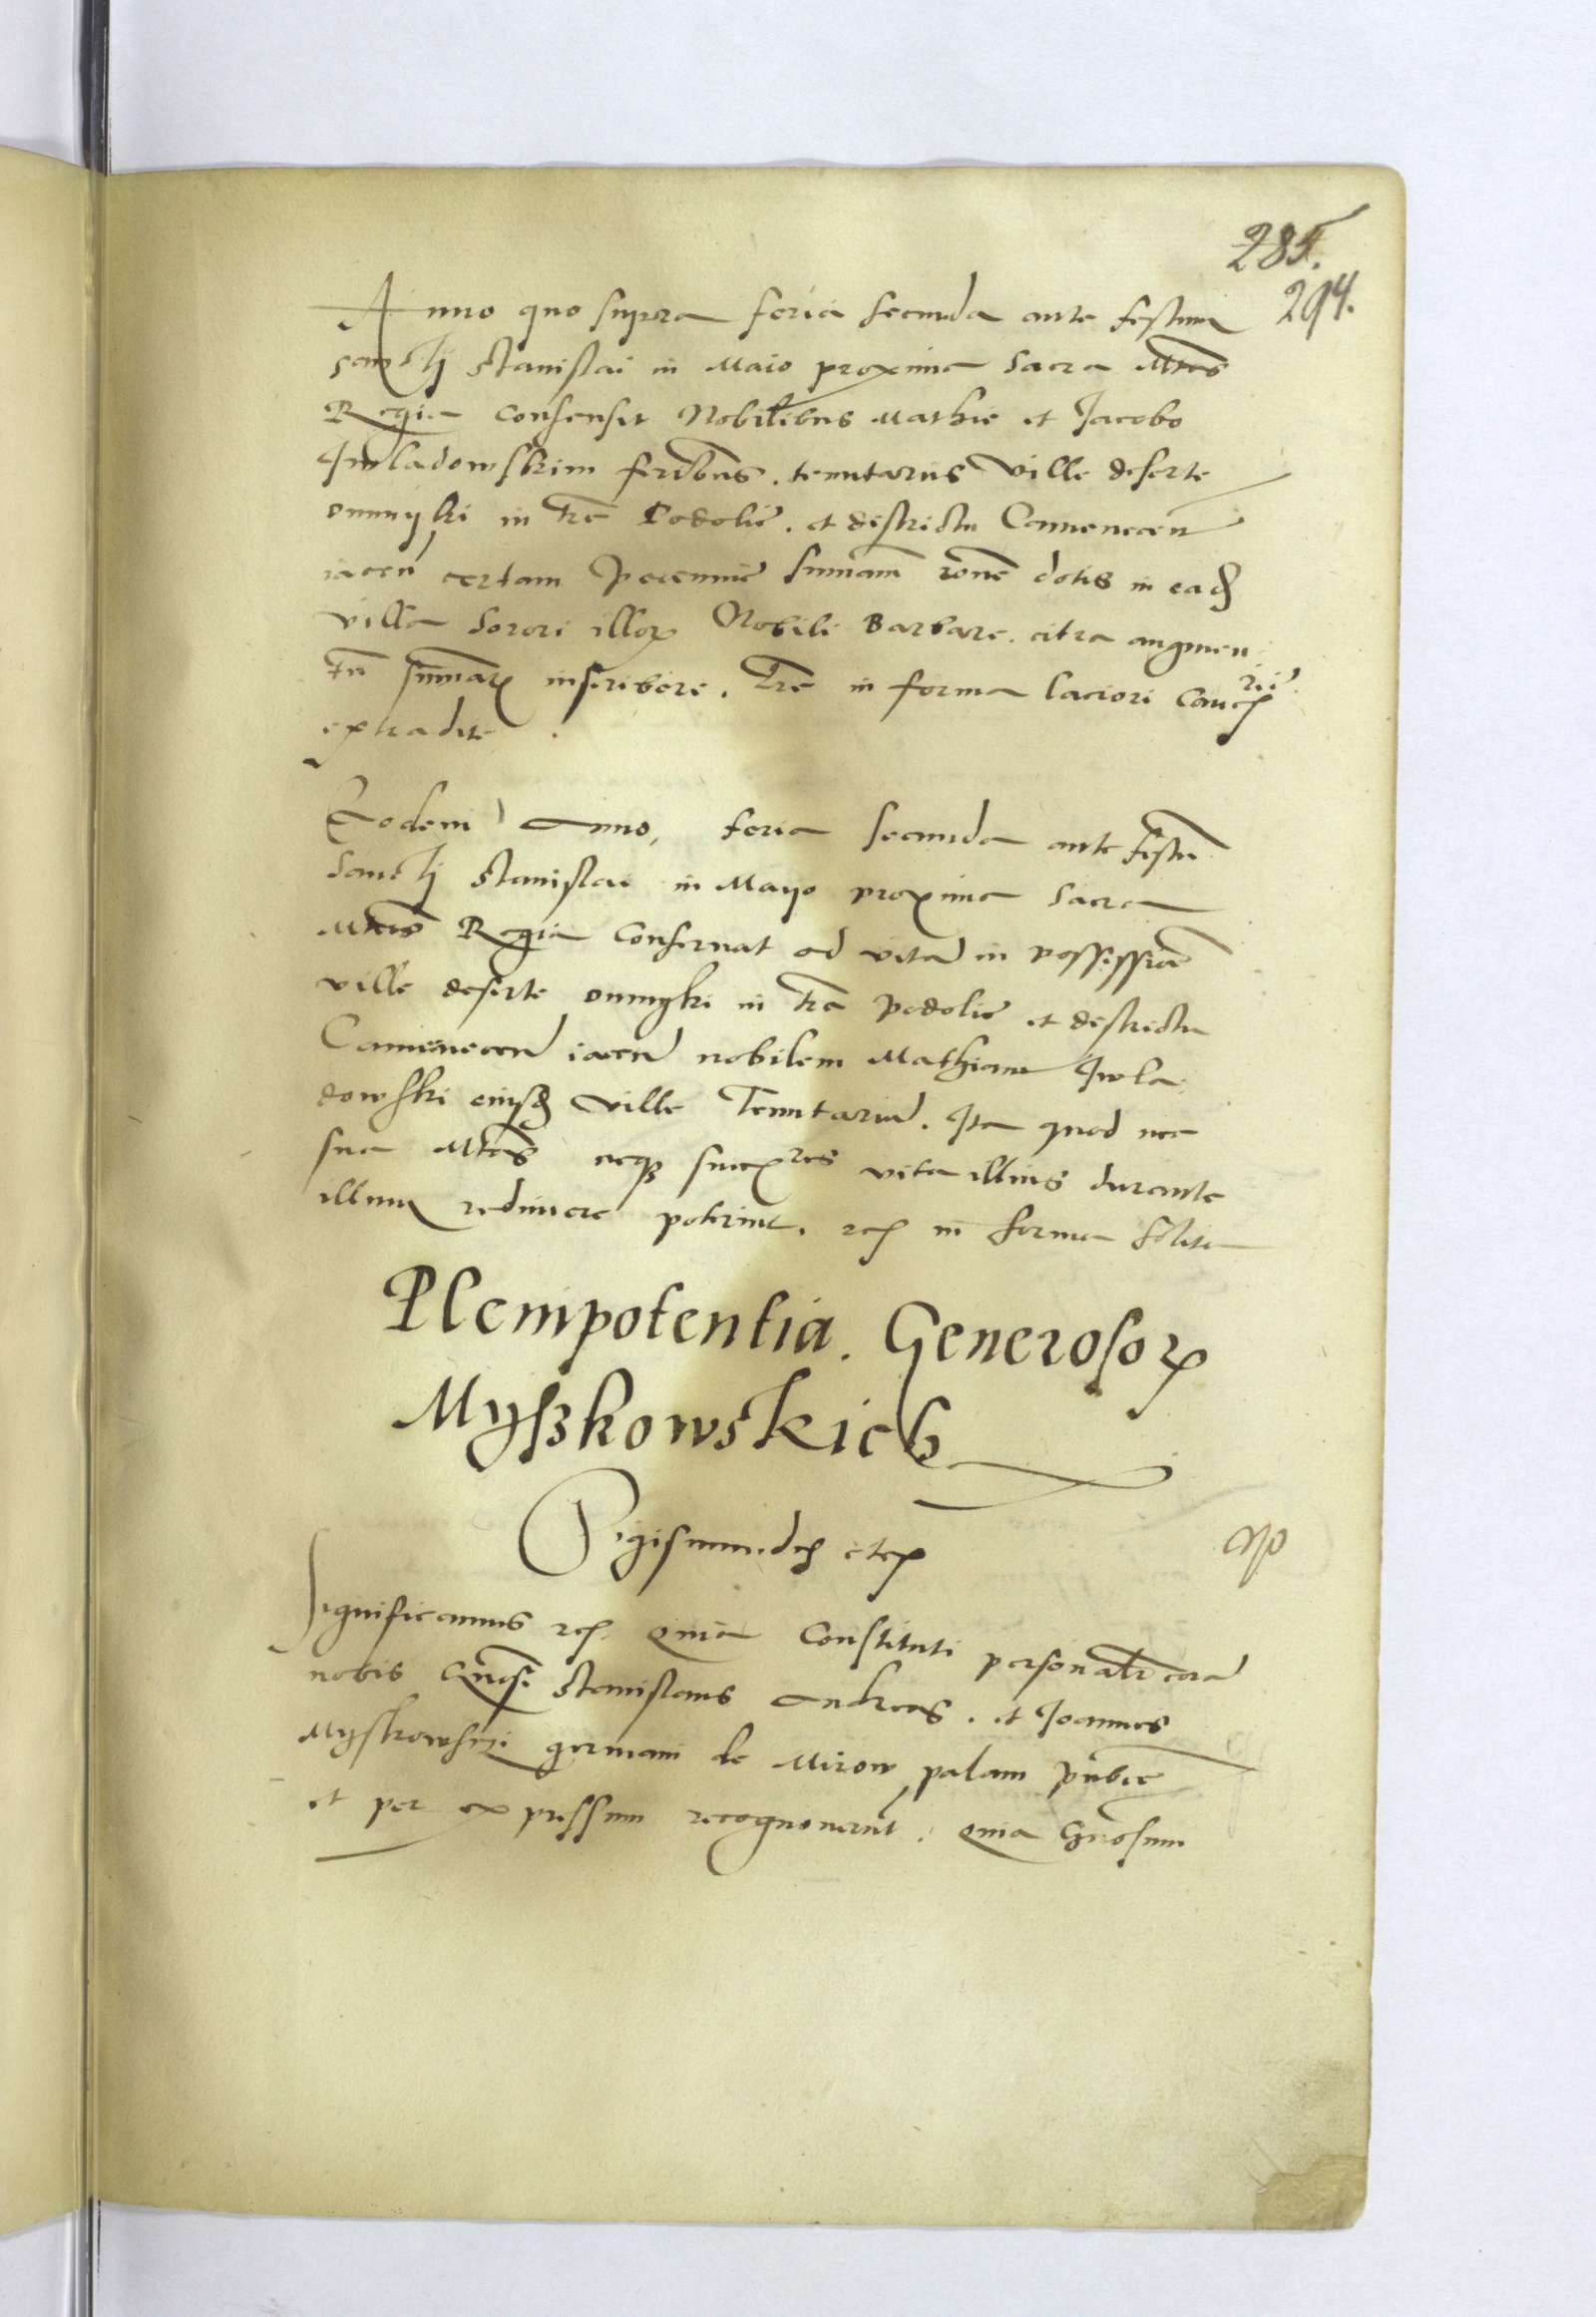 285.
294.
Anno quo supra feria secunda ante festum
sanctj Stanislai in Maio proxima Sacra Mtas
Regia consensit Nobilibus Mathie et Jacobo
Jwladowskim frībus. tenutarus Ville deserte
in tra Podolie. et districtu Camenecen
iacen certam pecunie summam rōne dotis in eadē
villa sorori illorꝝ Nobili Barbare. citra augmen
tū summarꝝ inscribere. Lre in forma laciori Cancꝭrie
extradite.
Eodem anno, feria secunda ante festū
Sanctj Stanislai in Mayo proxima Sacra
Mtas Regia Conseruat ad vitā in possessiōe
ville deserte in tra Podolie et districtu
Camenecen iacen nobilem Mathiam Jwla
dowski eiusdē Ville Tenutariū. Ita quod nec
sua Mtas neqꝫ succꝭres vita illius durante
illum redimere poterint. rcꝭ in forma solita
Plenipotentia. Generosorꝝ
Myßkowskich
Sigismundꝰ etcꝭ
Significamus rcꝭ. Quia Constituti personalr corā
nobis Gn̄osi Stanislaus Andreas. et Joannes
Myskowsczi germani de Mirow palam publice
et per expressum recognouerūt. Quia Gn̄osum